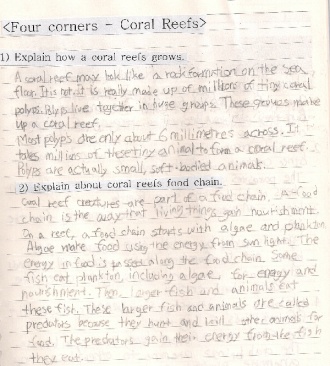 <Four corners - Coral Reefs>
1) Explain how a coral reefs grows.
A coral reef may look like a rock formation on the sea
floor. It is not. it is really made up of millions of tiny coral
polyps. Polyps live together in huge groups. These groups make
up a coral reef.
Most polyps are only about 6 millimetres across. It
takes millions of these tiny animal to form a coral reef.
Polyps are actually small, soft-bodied animals.
2) Explain about coral reefs food chain.
Coral reef creatures are part of a food chain. A food
chain is the way that living things gain nourishment.
On a reef, a food chain starts with algae and plankton.
Algae make food using the energy from sun light. The
energy in food is passed along the food chain. Some
fish eat plankton, including algae, for energy and
nourishment. Then larger fish and animals eat
these fish. These larger fish and animals are called
predators because they hunt and kill other animals for
food. The predators gain their energy from the fish
they eat.